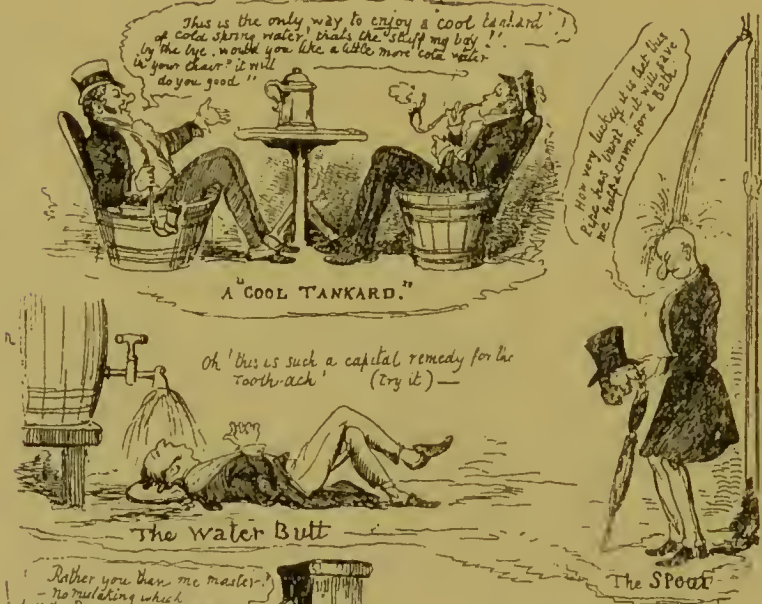 This is the only way to enjoy a 'cool tankard'!
of cold spring water' thats the stuff my boy!!
by the bye. would you like a little more cold water
in your chair? it will
do you good"
A "COOL TANKARD."
How very lucky it is that this
Pipe has burst - it will save
me half a crown for a Bath
Oh! this is such a capital remedy for the
Tooth-ach! (Try it) —
The Water Butt
The SPOUT
Rather you than me master!
- No mistaking which